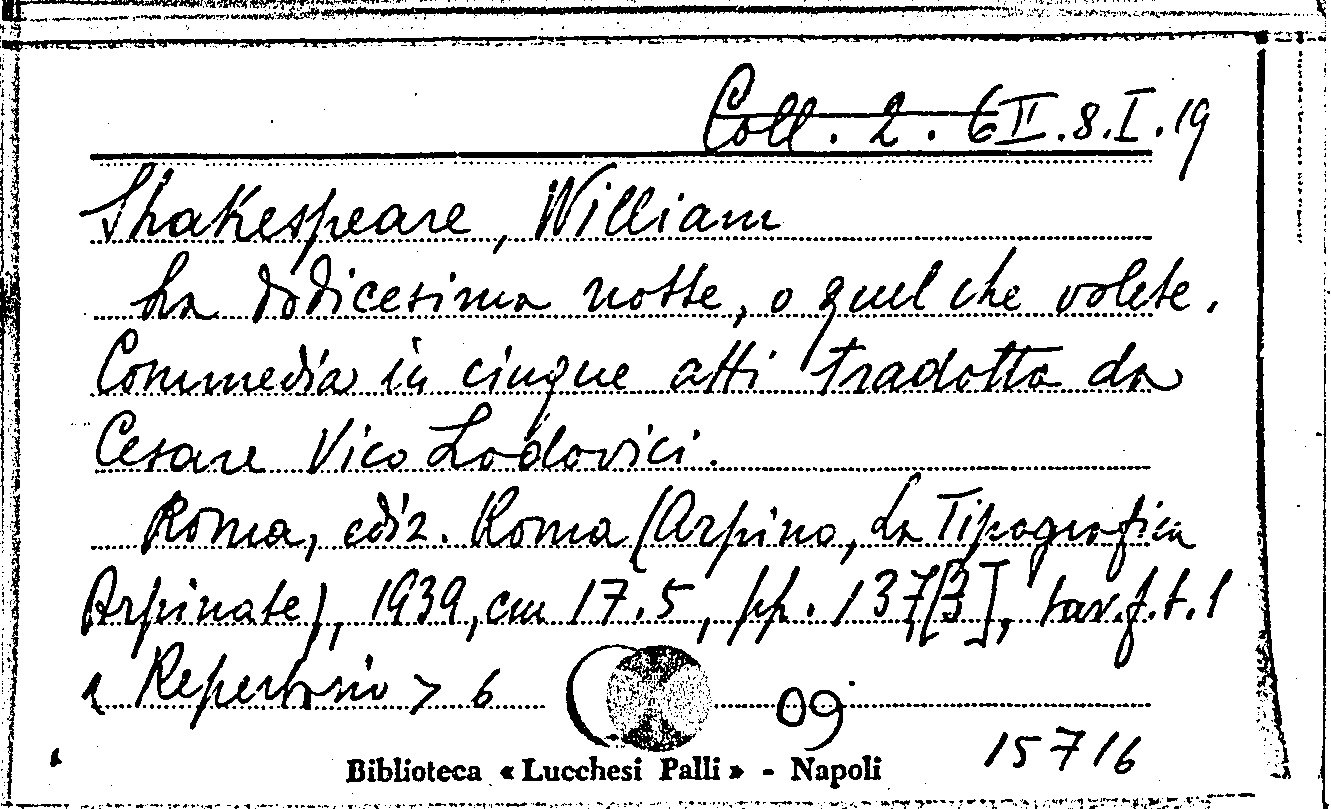 Coll. 2. 6 II.8.I.19
Shakespeare, William
La dodicesima notte, o quel che volete.
Commedia in cinque atti tradotta da
Cesare Vico Lodovici.
Roma, ediz. Roma (Arpino, La Tipografica
Arpinate), 1939, cm 17.5, pp. 137,[3], tav.f.t.1
« Repertorio > 6
09
15716
Biblioteca « Lucchesi Palli » - Napoli